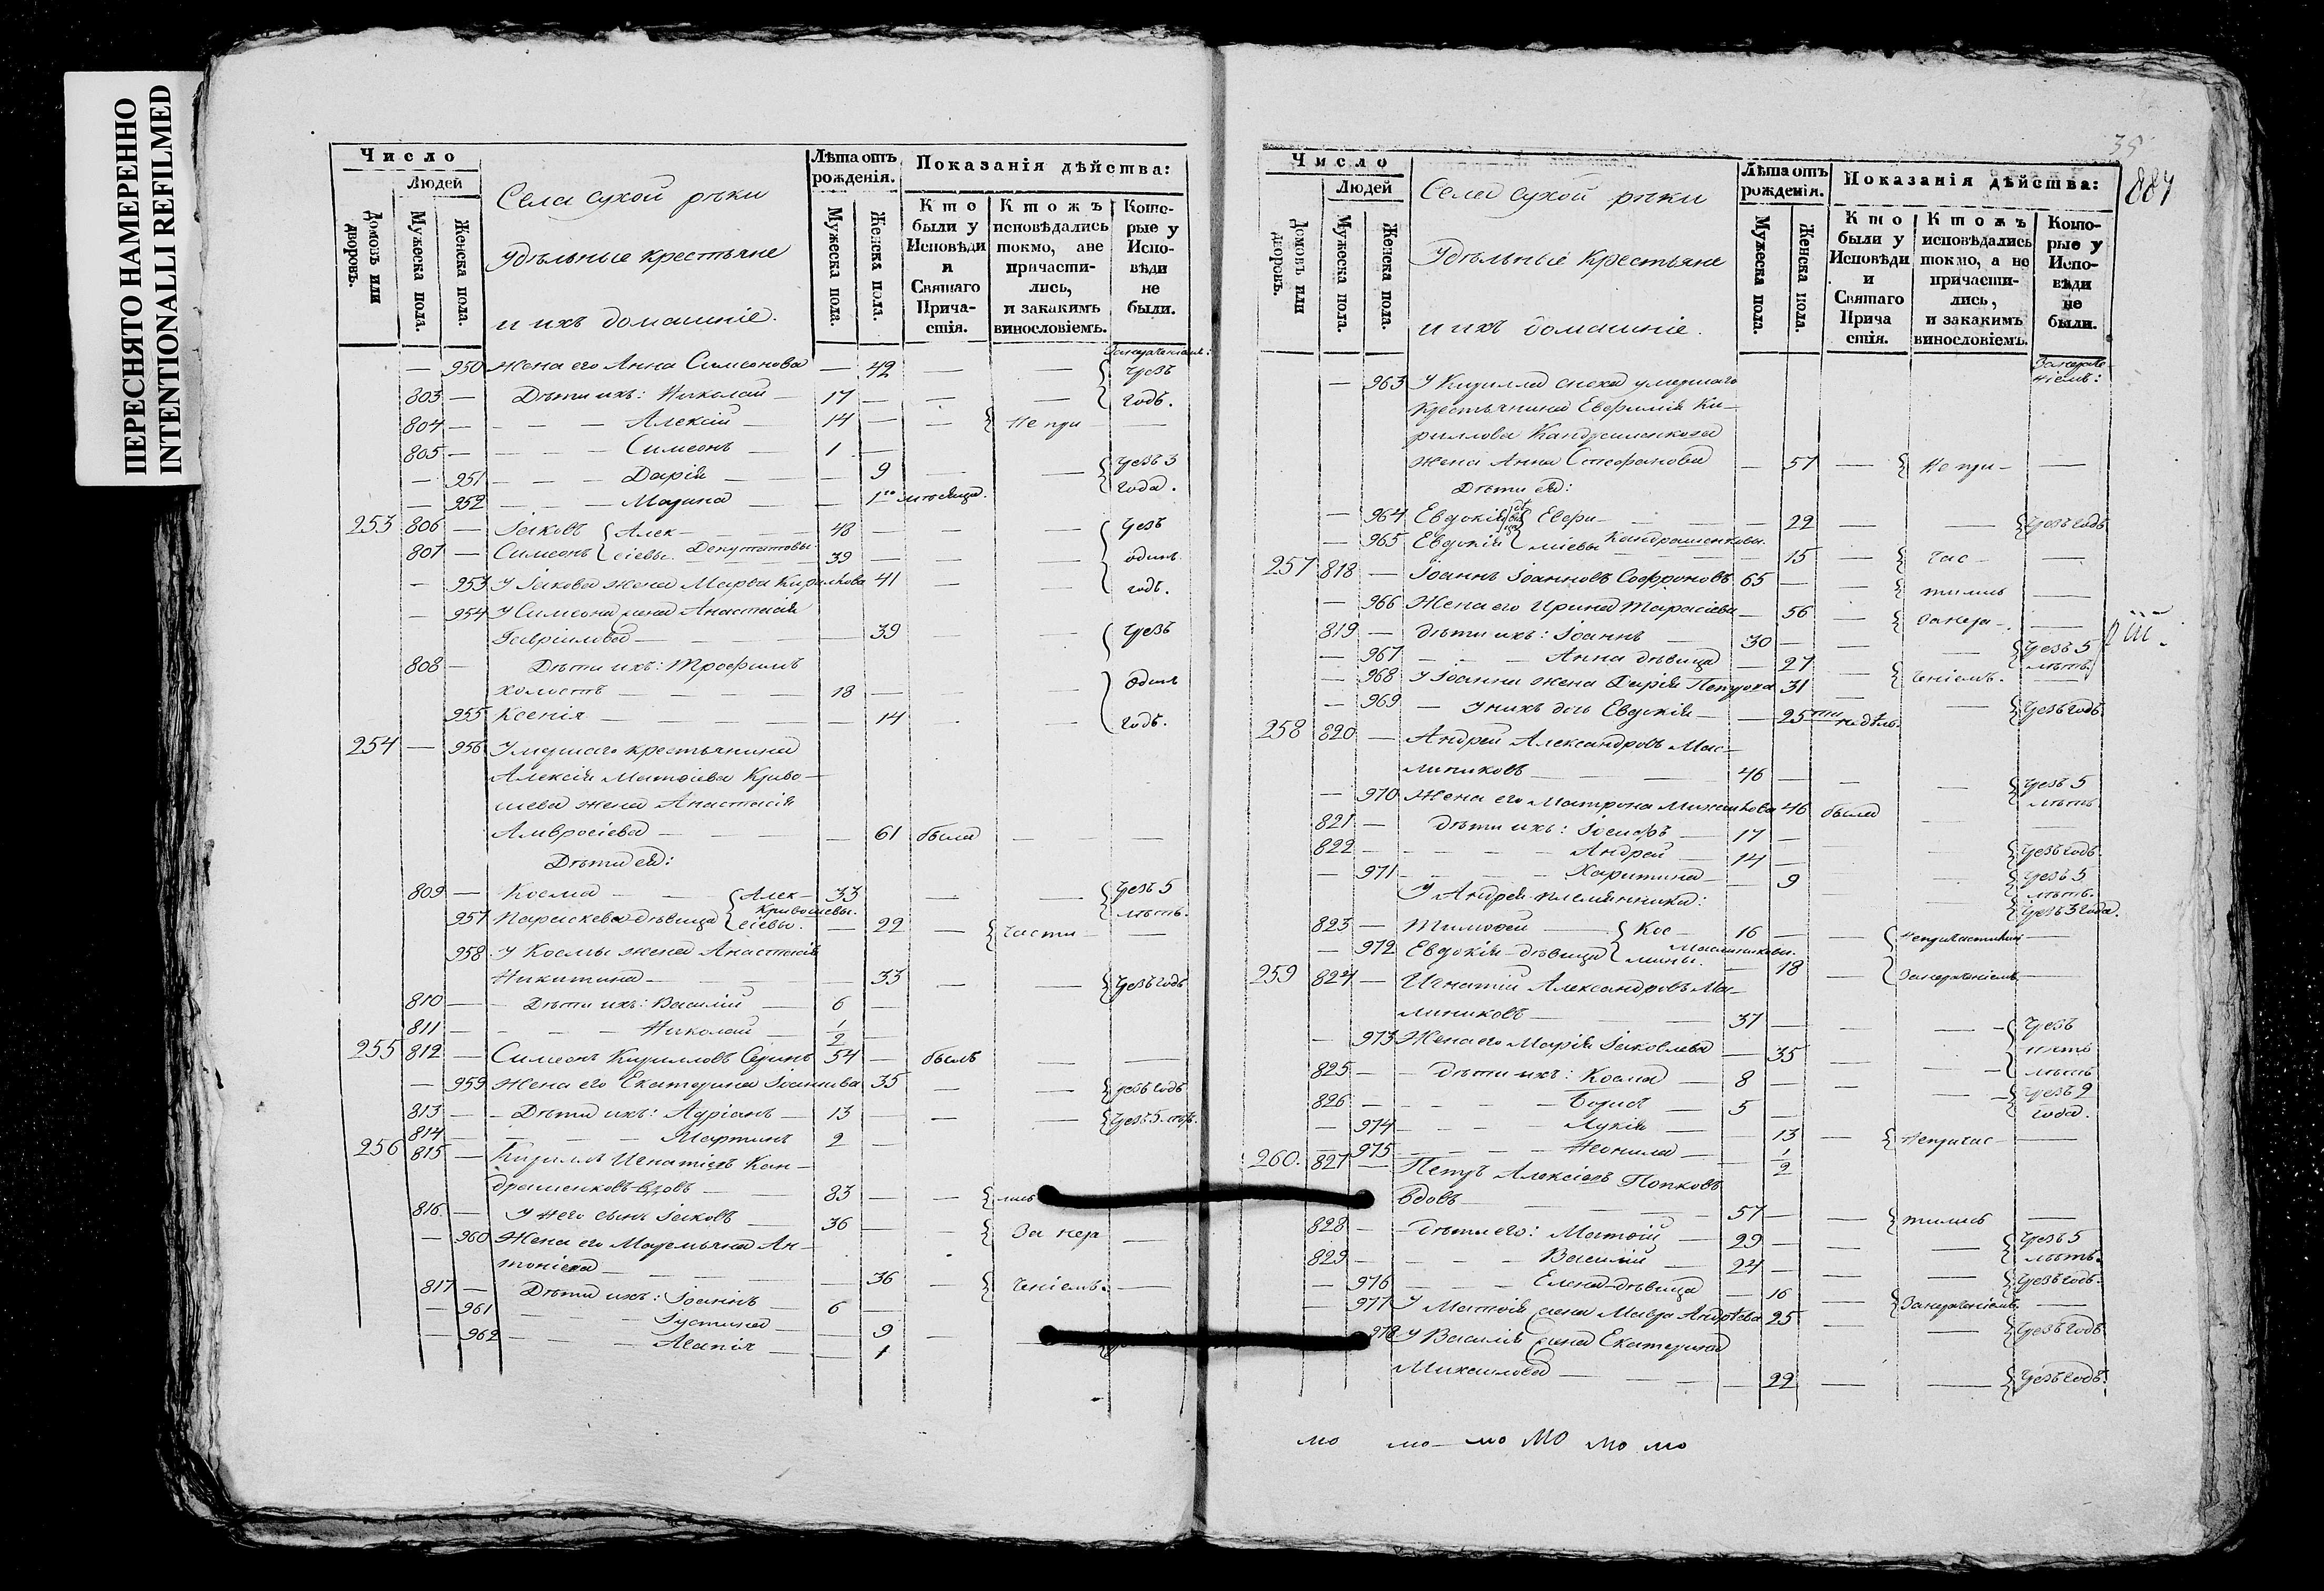 ПЕРЕСНЯТО НАМЕРЕННО
INTENTIONALLI REFILMED
Число
Людей
Домовъ или дворовъ.
Мужеска пола.
Женска пола.
Села сухой рѣки
Удѣльные крестьяне
и ихъ домашніе.
Лѣта отъ рожденія.
Мужеска пола.
Женска пола.
Показанія дѣйства:
Кто были у Исповѣди и Святаго Причастія.
Ктожъ исповѣдались токмо, а не причастились, и закакимъ винословіемъ.
Которые у Исповѣди не были.
— 950 Жена его Анна Симеонова — 42 — — Чрезъ
803 — Дѣти ихъ: Николай — 17 — — — годъ.
804 — — — — Алексій — 14 — — Не при —
805 — — — — Симеонъ — 1 —
— 951 — — — Дарія — — 9 — — Чрезъ 3
— 952 — — — Марина — — 1го мѣсяца. года.
253 806 — Іаковъ Алек- — 48 — — — Чрезъ
807 — Симеонъ сіевы. Депутатовы 39 — — одинъ
— 953 У Іакова жена Марѳа Кирилова 41 — годъ.
— 954 У Симеона жена Анастасія
Гавріилова — — — 39 — Чрезъ
808 — Дѣти ихъ: Трофимъ
холостъ — — — 18 — — — Одинъ
955 Ксенія — — — — 14 — годъ.
254 — 956 Умершаго крестьянина
Алексія Матѳіева Криво-
шева жена Анастасія
Амвросіева — — — 61 была — —
Дѣти ея:
809 — Косма — — Алек- 33 — — Чрезъ 5
957 Параскева дѣвица сіевы. Кривошевы. — 22 — Части — лѣтъ.
958 У Космы жена Анастасія
Никитина — — — 33 — — Чрезъ годъ
810 — — Дѣти ихъ: Василій — 6 —
811 — — — — Николай — 1/2
255 812 — Симеонъ Кирилловъ 54 — былъ — —
— 959 Жена его Екатерина Іоаннова 35 — — Чрезъ годъ
813 — — Дѣти ихъ: Адріанъ — 13 — — Чрезъ 5 лѣтъ.
814 — — — — Мартинъ 2 —
256 815 — Кириллъ Игнатіевъ Кан-
драшенковъ вдовъ — 83 — — лись
816 — У него сынъ Іаковъ — 36 — — За нер —
— 960 Жена его Марѳа Ан-
тоніева — — — 36 — ченіемъ. —
817 — Дѣти ихъ: Іоаннъ — 6 —
— 961 — — — Іустина — — 9 —
— 962 — — — Агапія — — 1
35
884
Число
Людей
Домовъ или дворовъ.
Мужеска пола.
Женска пола.
Села сухой рѣки
Удѣльные Крестьяне
и ихъ домашніе.
Лѣта отъ рожденія.
Мужеска пола.
Женска пола.
Показанія дѣйства:
Кто были у Исповѣди и Святаго Причастія.
Ктожъ исповѣдались токмо, а не причастились, и закакимъ винословіемъ.
Которые у Исповѣди не были.
— 963 У Кирилла сноха умершаго
Крестьянина Евѳимія Ки-
риллова Кандрашенкова
жена Анна Стефанова — 57 — Не при- —
Дѣти ея:
— 964 Евдокія Евѳи- — 22 — — Чрезъ годъ
— 965 Евдокія міевы Кандрашенковы. — 15 — час —
257 818 — Іоаннъ Іоанновъ Софроновъ 65 — — тились —
— 966 Жена его Ирина Тарасіева — 56 — За нера- —
819 — дѣти ихъ: Іоаннъ — 30 — — — Чрезъ 5
— 967 — — — Анна дѣвица — 27 — ченіемъ. лѣтъ.
— 968 У Іоанна жена Дарія Петрова 31 —
— 969 — У нихъ дочь Евдокія — — 25ти недѣль. — Чрезъ годъ
258 820 — Андрей Александровъ Мас-
линиковъ — — 46 — — — Чрезъ 5
— 970 Жена его Матрона Михайлова 46 была лѣтъ.
821 — Дѣти ихъ: Іосифъ — 17 —
822 — — — — Андрей — 14 — — Чрезъ годъ.
— 971 — — — Харитина — — 9 — Чрезъ 5 лѣтъ.
У Андрея племянники: Чрезъ 3 года.
823 — Тимоѳей — Кос- 16 — — Непричастились —
— 972 Евдокія — дѣвица мины. Маслиниковы. — 18 — За нераченіемъ —
259 824 — Игнатій Александровъ Ма-
линиковъ — — 37 — — — Чрезъ
— 973 Жена его Марія Іаковлева — 35 — пять
825 — — дѣти ихъ: Косма — 8 — — лѣтъ
826 — — — — Борисъ — 5 — — Чрезъ 2 года.
— 974 — — — — Лукія — — 13 — Непричас —
— 975 — — — Неонила — — 1/2
260. 827 — Петръ Алексіевъ Попковъ
вдовъ — — 57 — — тились —
828 — — дѣти его: Матѳій — 29 — — — Чрезъ 5
829 — — — — Василій — 24 — — лѣтъ.
— 976 — — — Елена дѣвица — 16 — Чрезъ годъ.
— 977 У Матѳія жена Мавра Андрѣева 25 — За нераченіемъ. —
978 У Василія жена Екатерина — Чрезъ годъ
Михайлова — — — 22 — — Чрезъ годъ.
мо мо мо МО мо мо